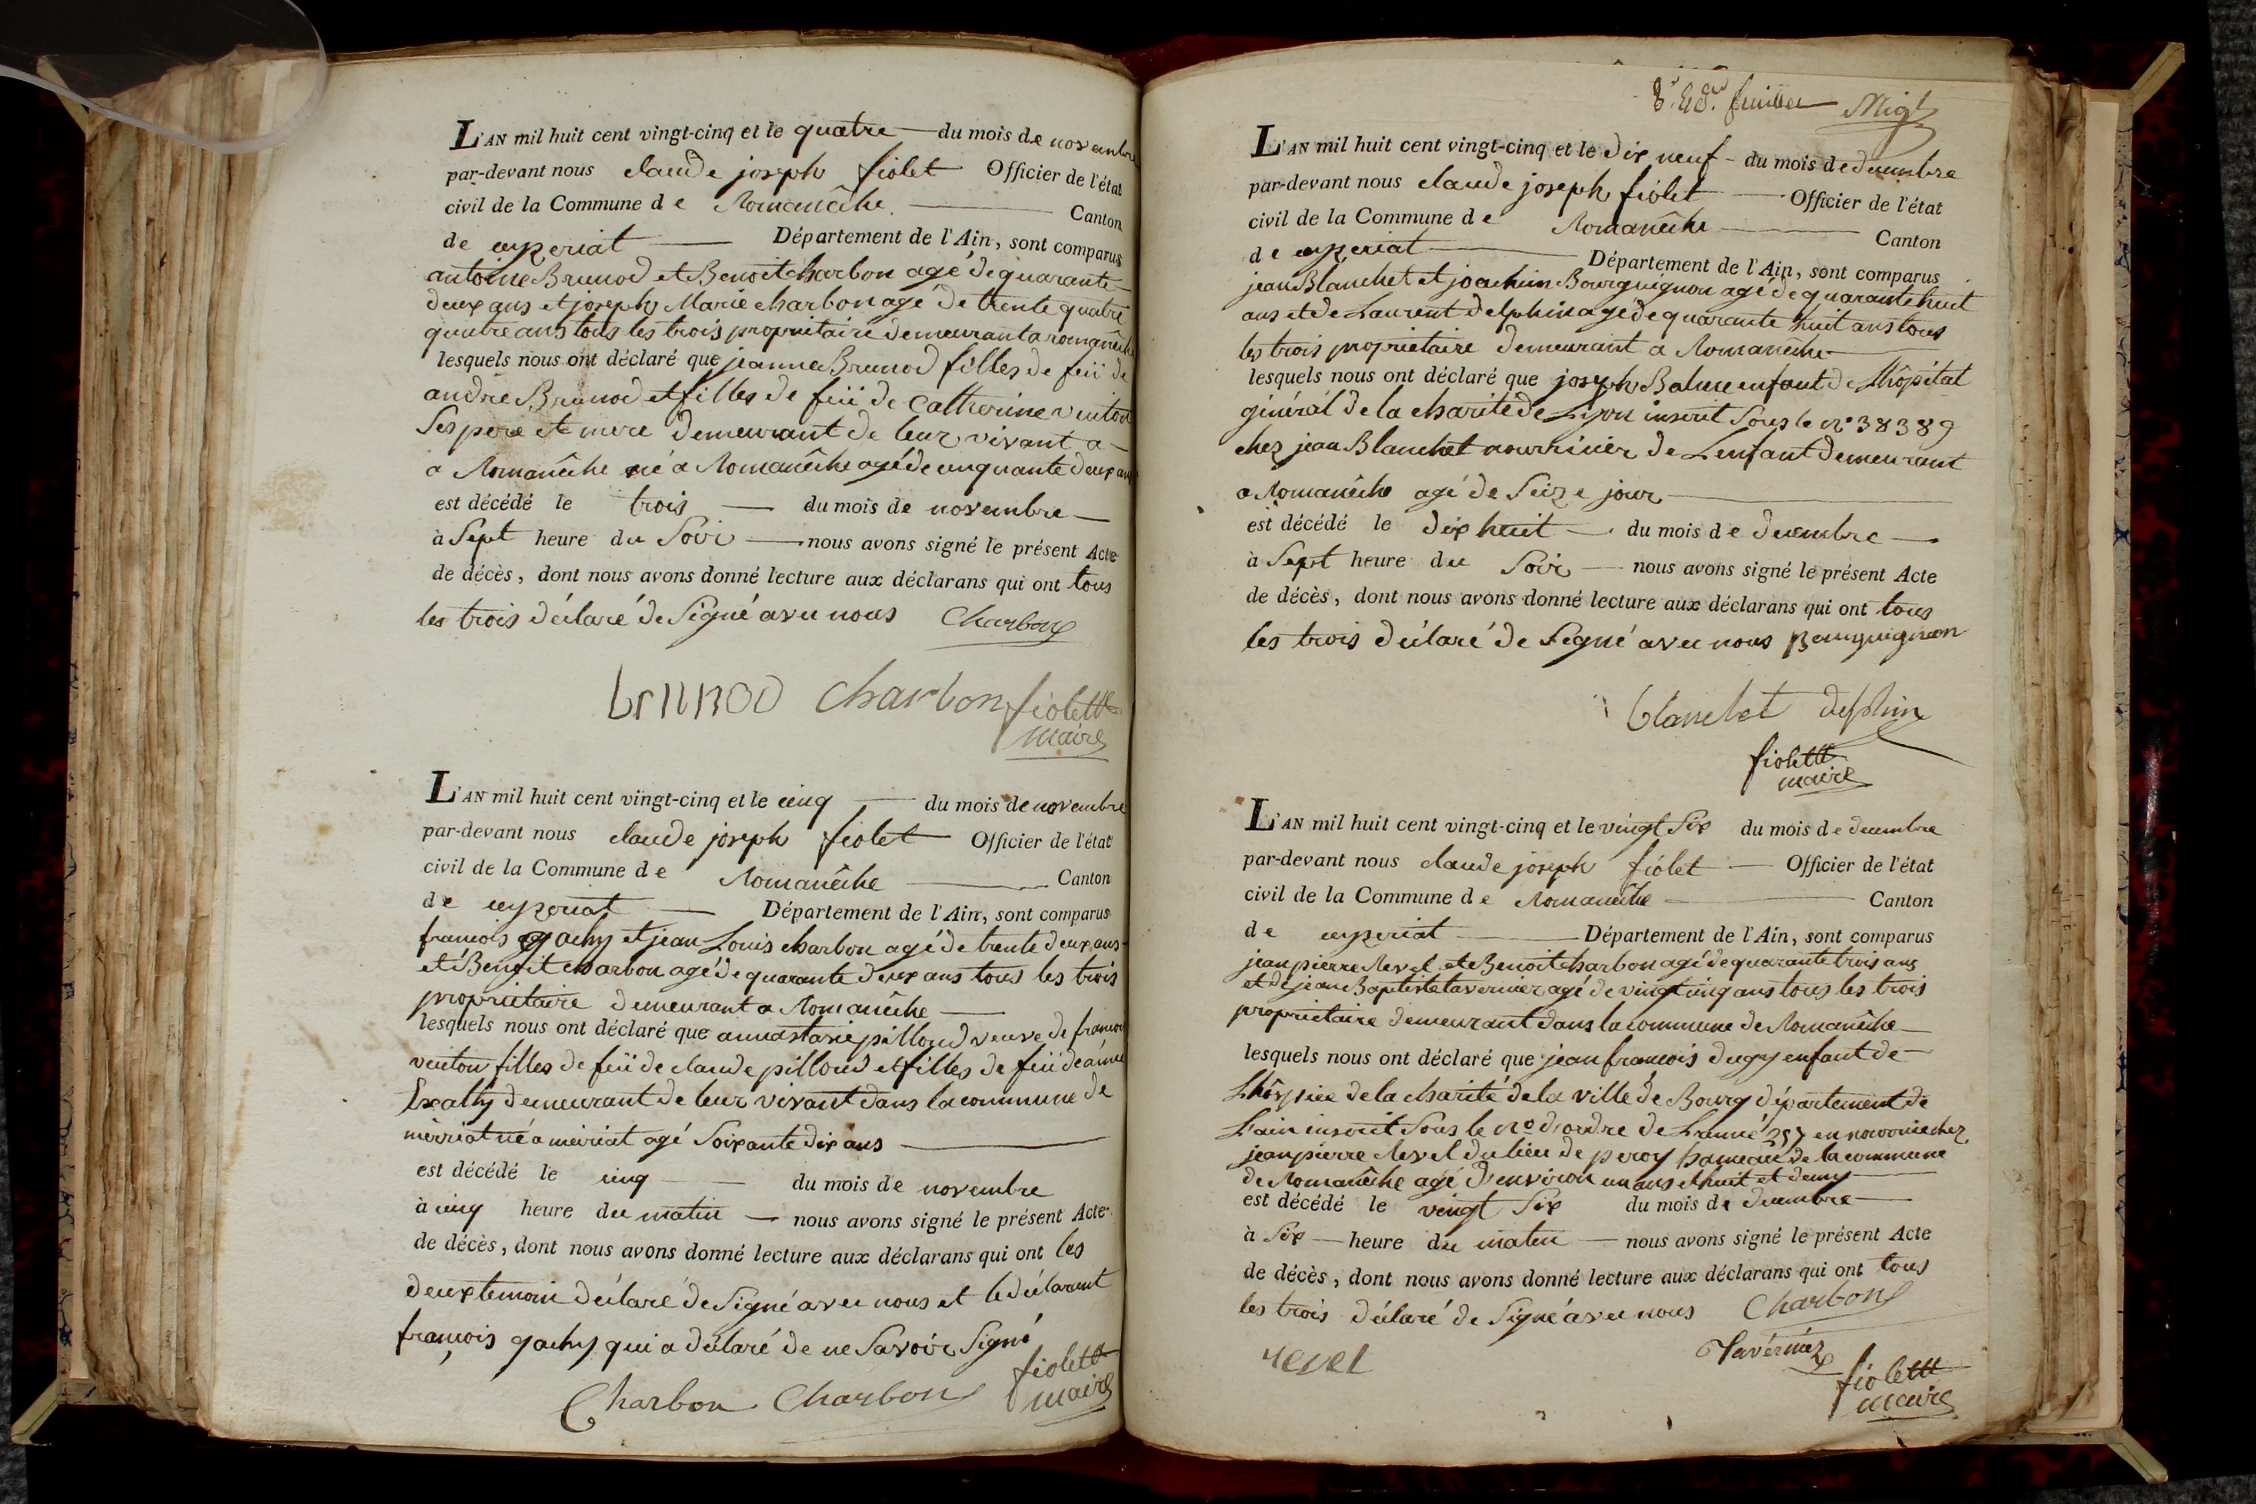 L'AN mil huit cent vingt-cinq et le quatre du mois de novembre
par-devant nous claude joseph fiolet Officier de l'état
civil de la Commune de Romanêche Canton
de ceyzeriat Département de l'Ain, sont comparus
antoine Brunod et Benoit charbon agé de quarante
deux ans et joseph Marie charbon agé de trente quatre
quatre ans tous les trois propriétaire demeurant a romanêche
lesquels nous ont déclaré que jeanne Brunod filles de feü de
andré Brunod et filles de feü de Catherine vuiton
Ses pere et mere demeurant de leur vivant a
a Romanêche né a Romanêche agé de cinquante deux ans
est décédé le trois du mois de novembre
à Sept heure du Soir nous avons signé le présent Acte
de décès, dont nous avons donné lecture aux déclarans qui ont tous
les trois déclaré de Signé avec nous Charbon
brunod charbon fiolet
maire
L'AN mil huit cent vingt-cinq et le cinq du mois de novembre
par-devant nous claude joseph fiolet Officier de l'état
civil de la Commune de Romanêche Canton
de ceyzeriat Département de l'Ain, sont comparus
francois gachy et jean Louis charbon agé de trente deux ans
et Benoit charbon agé de quarante deux ans tous les trois
propriétaire demeurant a Romanêche
lesquels nous ont déclaré que annastasie pilloud veuve de francois
vuiton filles de feü de claude pilloud et filles de feü de
demeurant de leur vivant dans la commune de
meiriat né a meiriat agé Soixante dix ans
est décédé le cinq du mois de novembre
à cinq heure du matin nous avons signé le présent Acte
de décès, dont nous avons donné lecture aux déclarans qui ont les
deux temoin déclaré de Signé avec nous et le déclarant
françois gachy qui a déclaré de ne Savoir Signé
Charbon Charbon fiolet
maire
feuillet
L'AN mil huit cent vingt-cinq et le dix neuf du mois de decembre
par-devant nous claude joseph fiolet Officier de l'état
civil de la Commune de Romanêche Canton
de ceyzeriat Département de l'Ain, sont comparus
jean Blanchet et joachim Bourguignon agé de quarante huit
ans et de Laurent delphin agé de quarante huit ans tous
les trois propriétaire demeurant a Romanêche
lesquels nous ont déclaré que joseph Balme enfant de Lhôpital
général de la charité de Lyon inscrit Sous le n° 38389
chez jean Blanchet nourricier de Lenfant demeurant
a Romanêche agé de Seize jour
est décédé le dix huit du mois de decembre
à Sept heure du Soir nous avons signé le présent Acte
de décès, dont nous avons donné lecture aux déclarans qui ont tous
les trois déclaré de Signé avec nous Bourguignon
blanchet delphin
fiolet
maire
L'AN mil huit cent vingt-cinq et le vingt Six du mois de decembre
par-devant nous claude joseph fiolet Officier de l'état
civil de la Commune de Romanêche Canton
de ceyzeriat Département de l'Ain, sont comparus
jean pierre Revel et Benoit charbon agé de quarante trois ans
et de jean Baptiste tavernier agé de vingt cinq ans tous les trois
propriétaire demeurant dans la commune de Romanêche
lesquels nous ont déclaré que jean francois dugy enfant de
Lhospice de la charité de la ville de Bourg département de
L'ain inscrit Sous le n° d'ordre de L'anné 257 en chez
jean pierre Revel du lieu de peroy hameau de la commune
de Romanêche agé d'environ un ans et huit et demy
est décédé le vingt Six du mois de decembre
à Six heure du matin nous avons signé le présent Acte
de décès, dont nous avons donné lecture aux déclarans qui ont tous
les trois déclaré de Signé avec nous Charbon
revel Tavernier fiolet
maire